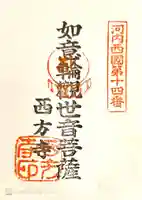 河内西國第十四番
如意輪觀世音菩薩
西方寺